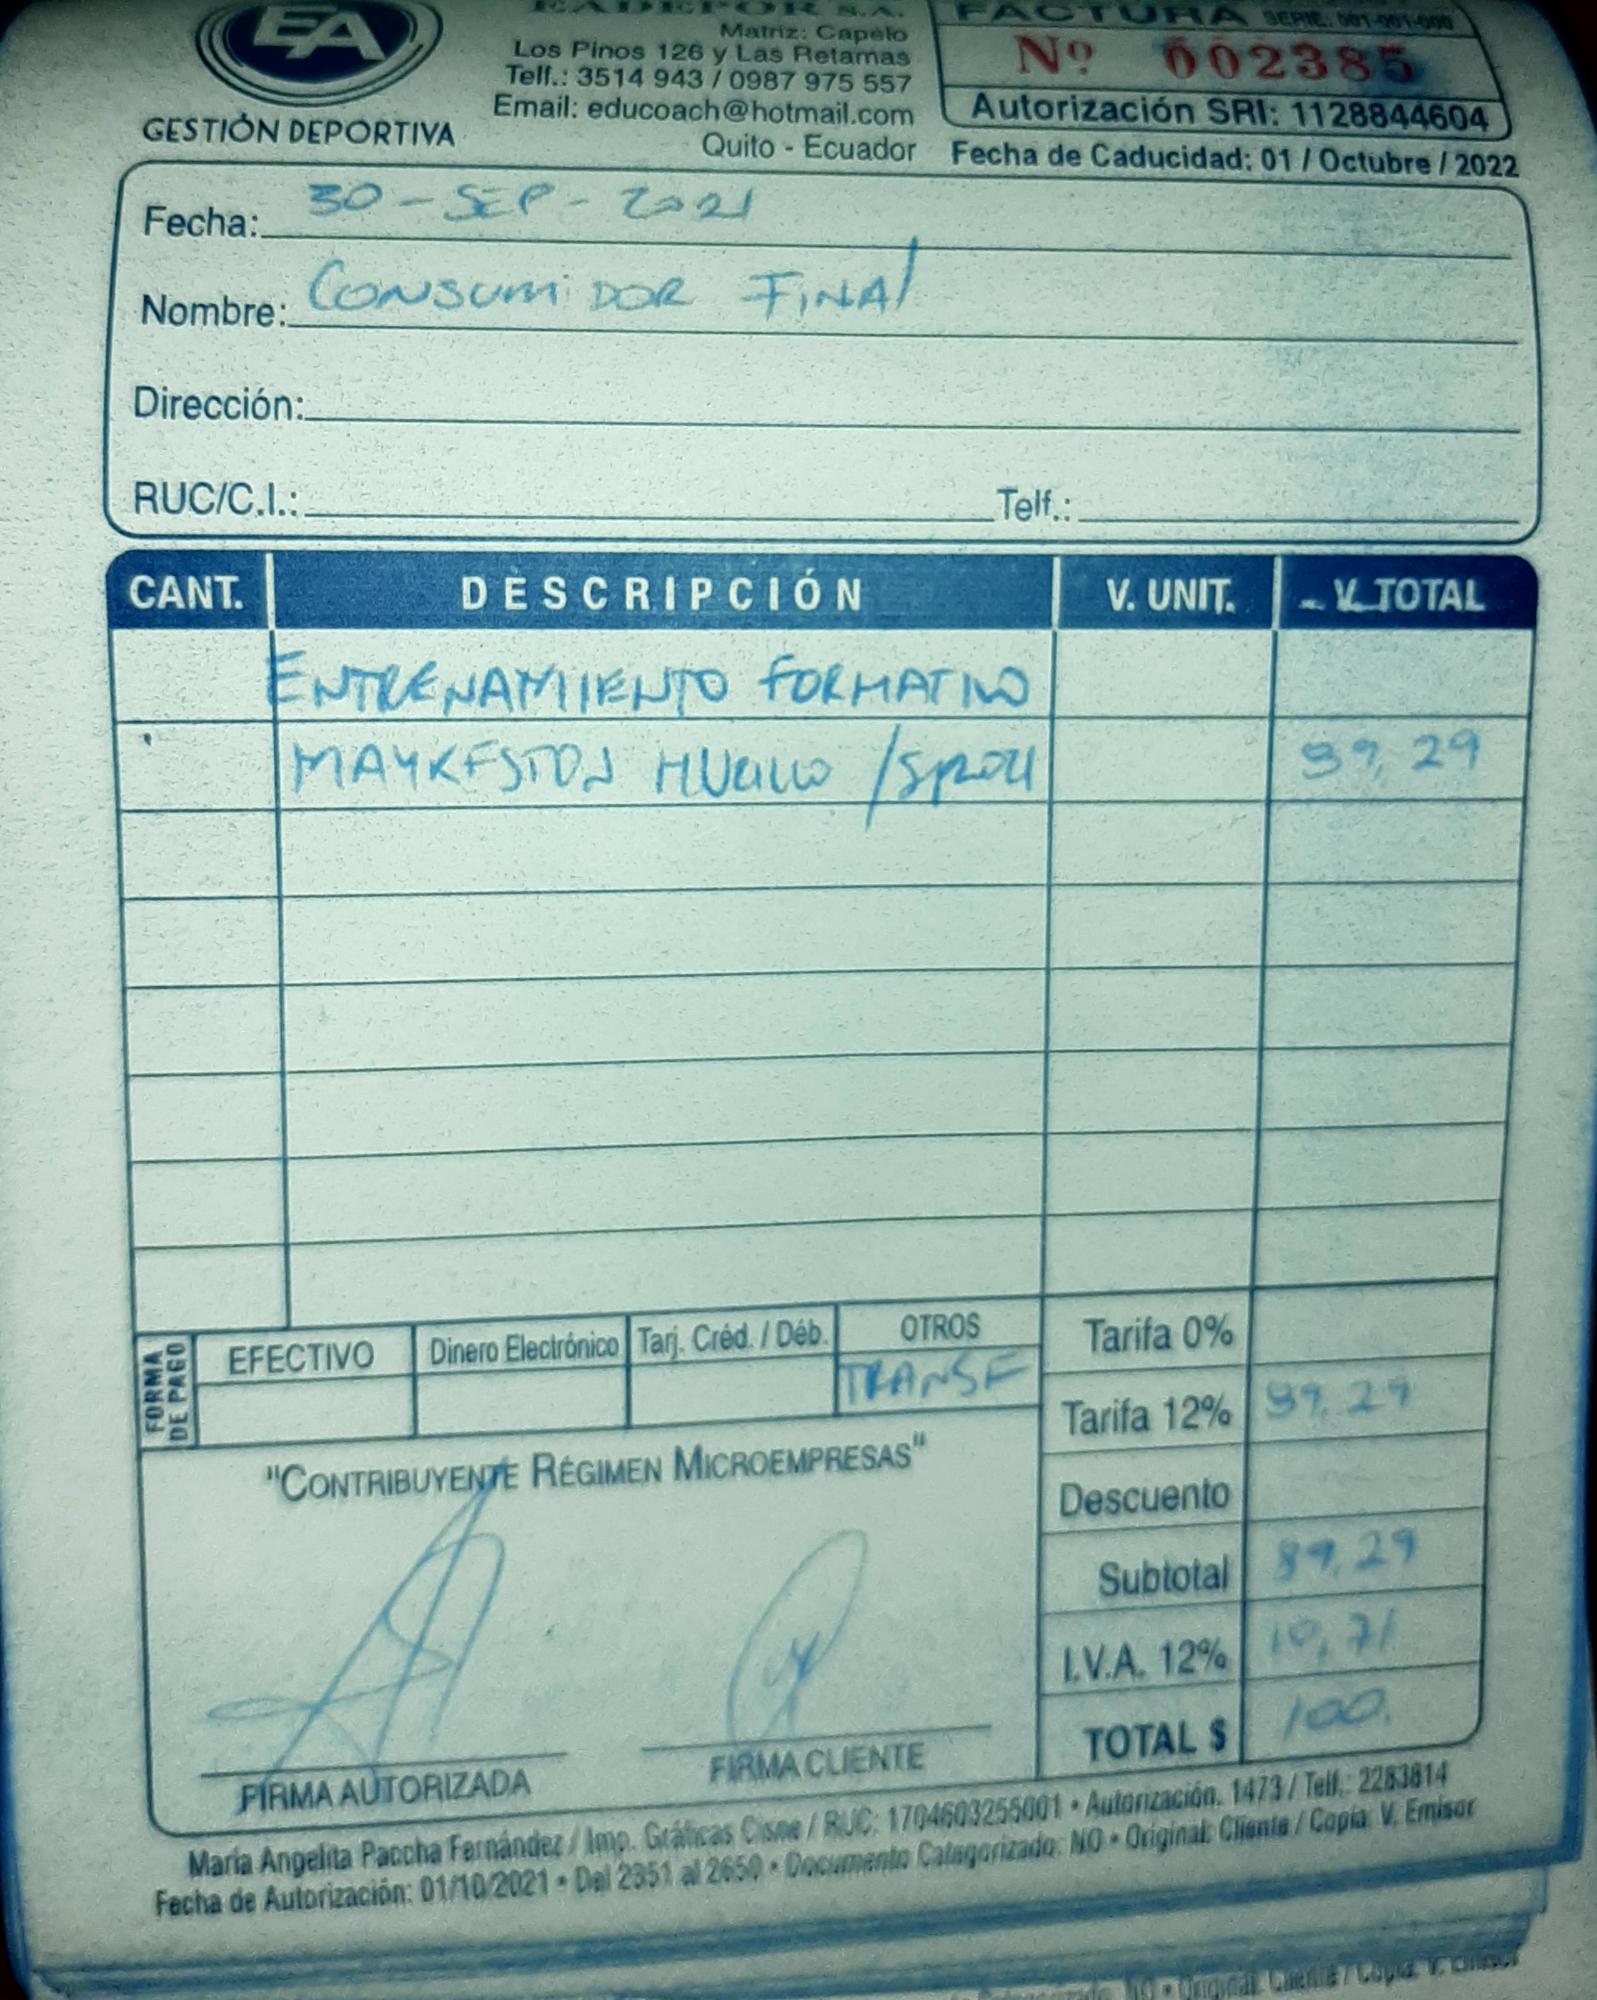 EA
GESTIÓN DEPORTIVA
EADEPOR S.A.
Matriz: Capelo
Los Pinos 126 y Las Retamas
Telf.: 3514 943 / 0987 975 557
Email: educoach@hotmail.com
Quito - Ecuador
FACTURA SERIE: 001-001-000
Nº 002385
Autorización SRI: 1128844604
Fecha de Caducidad: 01 / Octubre / 2022
Fecha: 30-SEP-2021
Nombre: CONSUMIDOR FINAL
Dirección:
RUC/C.I.: Telf.:
CANT. DESCRIPCIÓN V. UNIT. V. TOTAL
ENTRENAMIIENTO FORMATIVO
89,29
FORMA DE PAGO
EFECTIVO Dinero Electrónico Tarj. Créd. / Déb. OTROS
TRANSF
Tarifa 0%
Tarifa 12% 89,29
Descuento
Subtotal 89,29
I.V.A. 12% 10,71
TOTAL $ 100.
"CONTRIBUYENTE RÉGIMEN MICROEMPRESAS"
FIRMA AUTORIZADA FIRMA CLIENTE
María Angelita Paccha Fernández / Imp. Gráficas Cisne / RUC: 1704603255001 • Autorización. 1473 / Telf.: 2283814
Fecha de Autorización: 01/10/2021 • Del 2351 al 2650 • Documento Categorizado: NO • Original: Cliente / Copia: V. Emisor
NO • Original: Cliente / Copia: V. Emisor